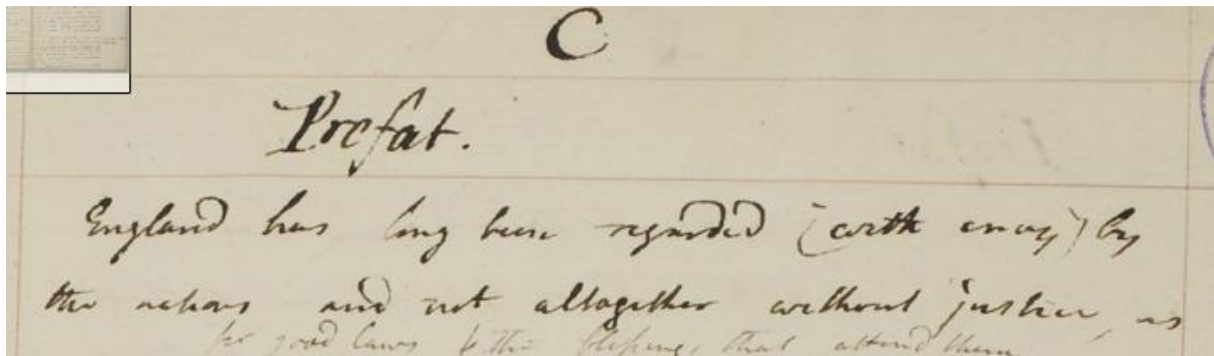 C
Prefat.
England has long been regarded (with envy) by
the nations and not altogether without justice, as
for good laws & the blessings that attend them